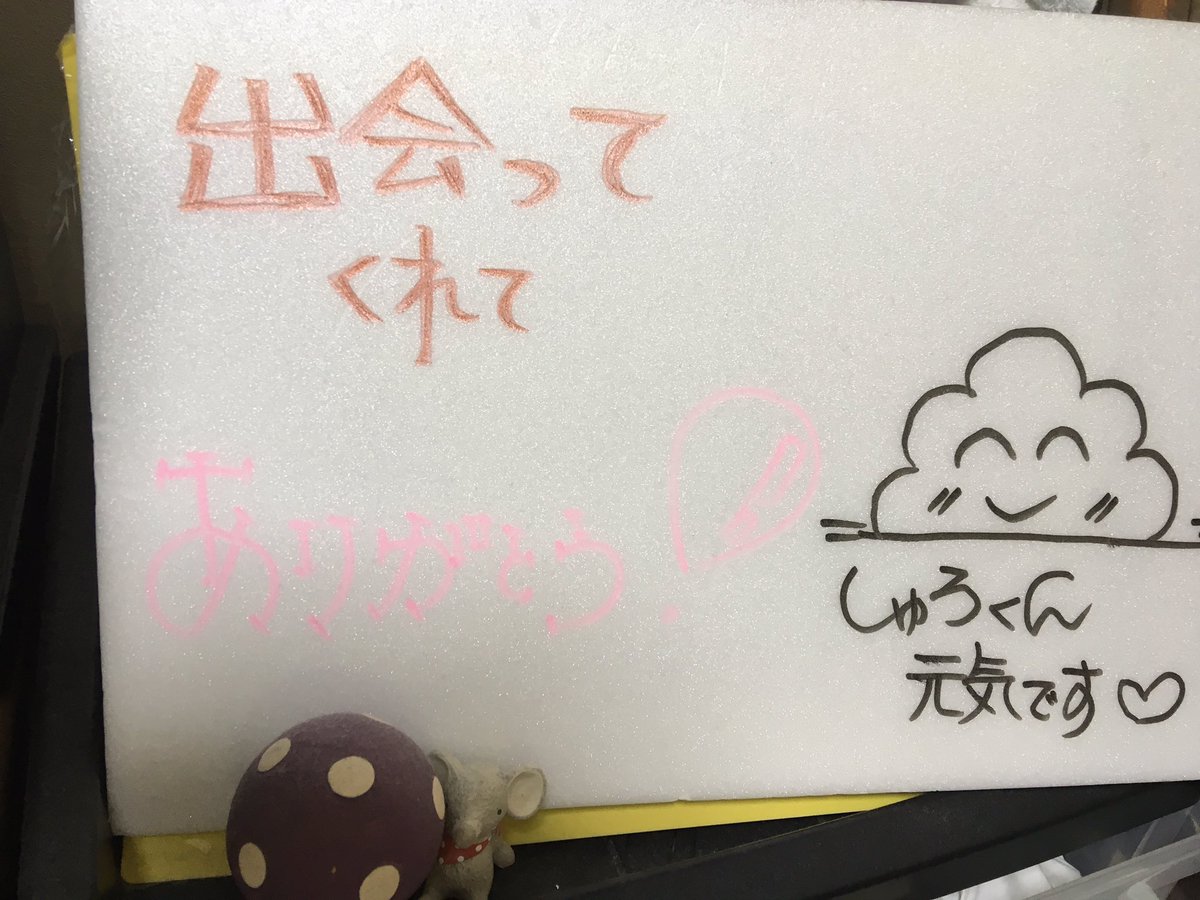 出会って
くれて
ありがとう!
しゅろくん
元気です♡